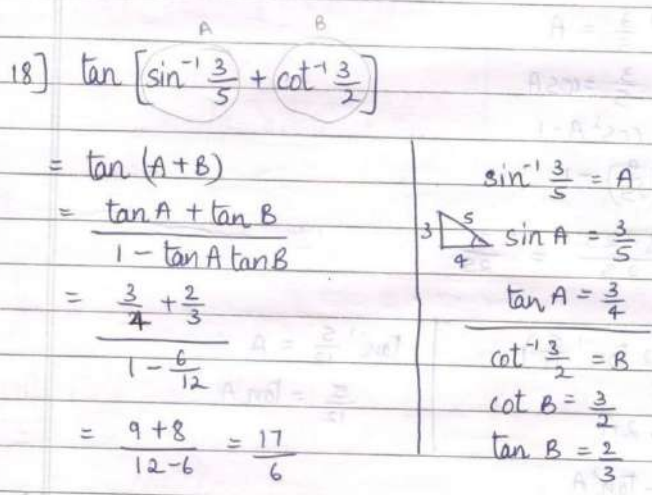 A B
18] tan [sin⁻¹ 3/5 + cot⁻¹ 3/2]
= tan (A+B)
= (tan A + tan B) / (1 - tan A tan B)
= (3/4 + 2/3) / (1 - 6/12)
= (9+8) / (12-6) = 17/6
sin⁻¹ 3/5 = A
3 5 4 sin A = 3/5
tan A = 3/4
cot⁻¹ 3/2 = B
cot B = 3/2
tan B = 2/3